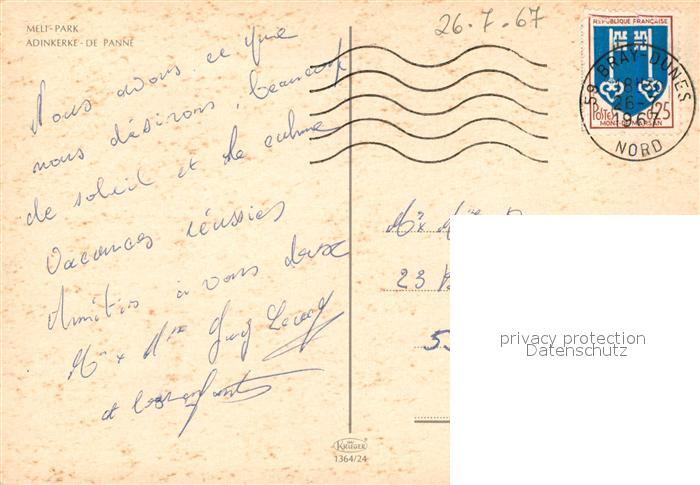 MELI-PARK
ADINKERKE - DE PANNE
26.7.67
Nous avons ce que
nous désirons, beaucoup
de soleil et de calme
Vacances réussies
Amitiés à vous deux
Mr x Mme Guy
et les enfants
REPUBLIQUE FRANÇAISE
POSTES 0,25
MONT-DE-MARSAN
59 BRAY-DUNES
18H
26-7
1967
NORD
Mr x Mme
23
privacy protection
Datenschutz
KRÜGER
1364/24